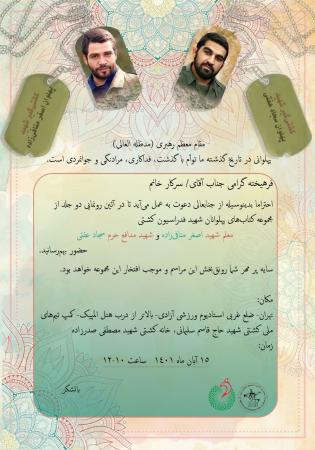 کشتی‌گیر شهید
پهلوان اصغر منافی‌زاده
کشتی‌گیر شهید
پهلوان سجاد عفتی
مقام معظم رهبری (مدظله العالی)
پهلوانی در تاریخ گذشته ما توأم با گذشت، فداکاری، مردانگی و جوانمردی است.
فرهیخته گرامی جناب آقای/ سرکار خانم
احتراما بدینوسیله از جنابعالی دعوت به عمل می‌آید تا در آئین رونمایی دو جلد از
مجموعه کتاب‌های پهلوانان شهید فدراسیون کشتی
معلم شهید اصغر منافی‌زاده و شهید مدافع حرم سجاد عفتی
حضور بهم‌رسانید.
سایه پر مهر شما رونق‌بخش این مراسم و موجب افتخار این مجموعه خواهد بود.
مکان:
تهران- ضلع غربی استادیوم ورزشی آزادی- بالاتر از درب هتل المپیک- کمپ تیم‌های
ملی کشتی شهید حاج قاسم سلیمانی، خانه کشتی شهید مصطفی صدرزاده
زمان:
۱۵ آبان ماه ۱۴۰۱ ساعت ۱۲:۱۰
باتشکر